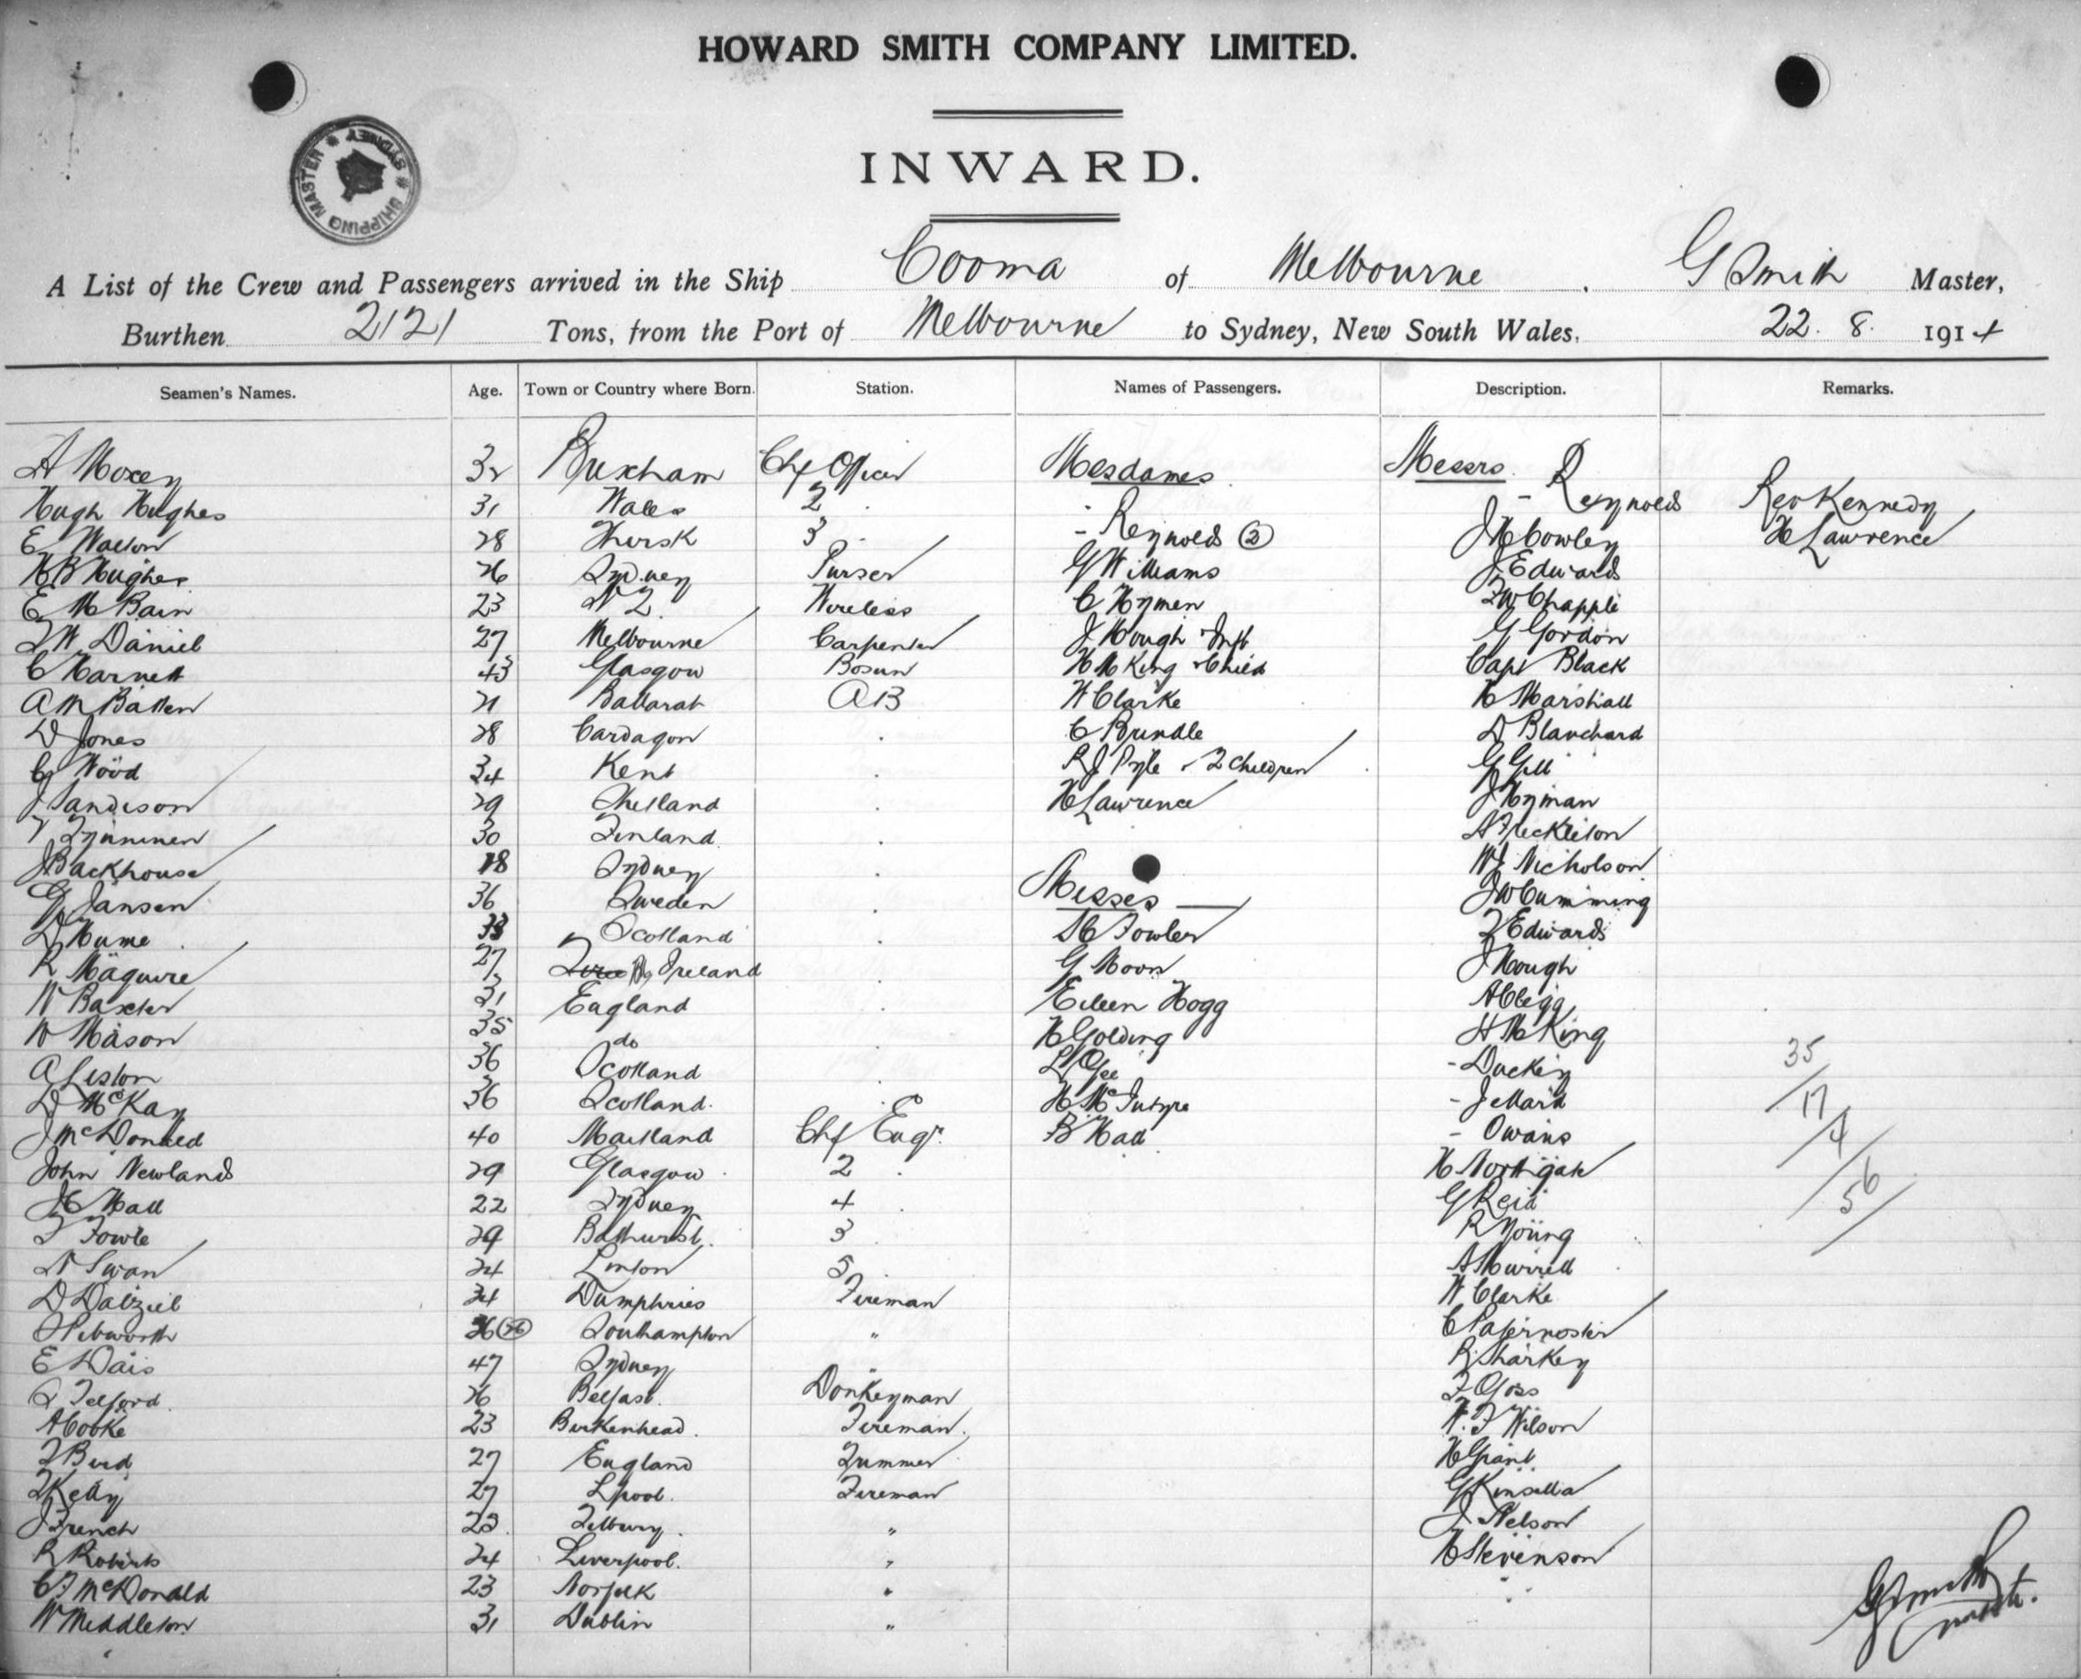 HOWARD SMITH COMPANY LIMITED.
SHIPPING MASTER * SYDNEY *
INWARD.
A List of the Crew and Passengers arrived in the Ship Cooma of Melbourne, G Smith Master,
Burthen 2121 Tons, from the Port of Melbourne to Sydney, New South Wales, 22. 8. 1914
Seamen's Names. Age. Town or Country where Born. Station. Names of Passengers. Description. Remarks.
A Moxey 32 Brixham Chf Officer Mesdames Messrs - Reynolds Rev Kennedy
Hugh Hughes 31 Wales 2 - Reynolds (2) J H Cowley H Lawrence
E Walton 28 Thirsk 3 G Williams J Edwards
H B Hughes 26 Sydney Purser C Hymen F W Chapple
E M Bain 23 N Z Wireless J Hough + Inft G Gordon
F W Daniel 27 Melbourne Carpenter H M King + Child Capt Black
C Harnett 43 Glasgow Bosun W Clarke H Marshall
A M Batten 21 Ballarat A B C Brindle A Blanchard
D Jones 28 Cardagon R J Pyle + 2 Children G Gill
G Wood 34 Kent H Lawrence J Hyman
J Sandison 29 Shetland A Freckleton
30 Finland W J Nicholson
J Backhouse 18 Sydney Misses J W Cumming
G Jansen 36 Sweden M C Fowler F Edwards
D Hume 33 Scotland G Moon J Hough
R Maguire 27 Ireland Eileen Hogg A Clegg
W Baxter 31 England H Golding H M King
W Mason 35 do L Gee - Duckey
A Liston 36 Scotland H McIntyre - Jellard
D McKay 36 Scotland. B Hall - Owens
J McDonald 40 Maitland Chf Engr. H Northgate
John Newlands 29 Glasgow 2 G Reid
J C Hall 22 Sydney 4 R Young
F Fowle 29 Bathurst. 3 A Murrell
N Swan 24 Linton 5 W Clarke
D Dalziel 34 Dumphries Fireman C Paternoster
26 (26) Southampton " R Sharkey
E Dais 47 Sydney " F Goss
S Telford 26 Belfast. Donkeyman W. F Wilson
A Cooke 23 Birkenhead. Fireman. H Grant
F Bird 27 England Trimmer G Kinsella
T Kelly 27 Lpool. Fireman J Nelson
J French 23 Tilbury. " H Stevenson
R Roberts 24 Liverpool. "
C F McDonald 23 Norfolk "
W Middleton 31 Dublin "
35
17
4
6
5
G Smith
Master.